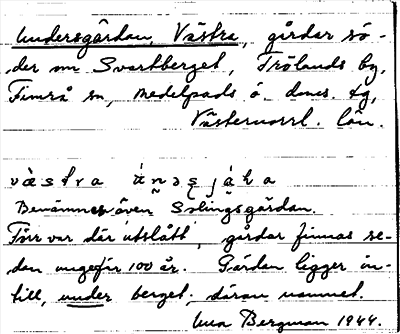 Undersgården, Västra, gårdar sö-
der om Svartberget, Trölands by,
Timrå sn, Medelpads ö. doms. tg,
Västernorrl. län.
västra
Benämnes även Solingsgården.
Förr var där utslått, gårdar finnas se-
dan ungefär 100 år. Gården ligger in-
till, under berget; därav namnet.
Bergman 1944.